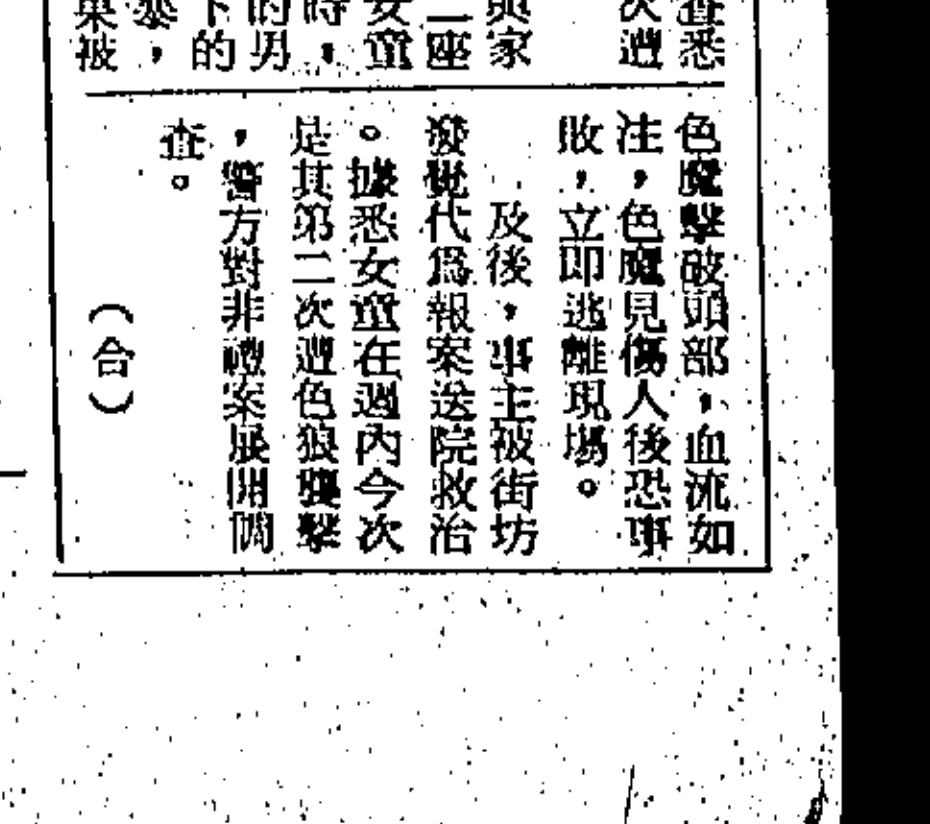 查悉
次遭
與家
二座
女童
時，
的男
下的
暴，
果被
色魔擊破頭部，血流如
注，色魔見傷人後恐事
敗，立即逃離現場。
及後，事主被街坊
發覺代爲報案送院救治
。據悉女童在週內今次
是其第二次遭色狼襲擊
，警方對非禮案展開調
查。
（合）